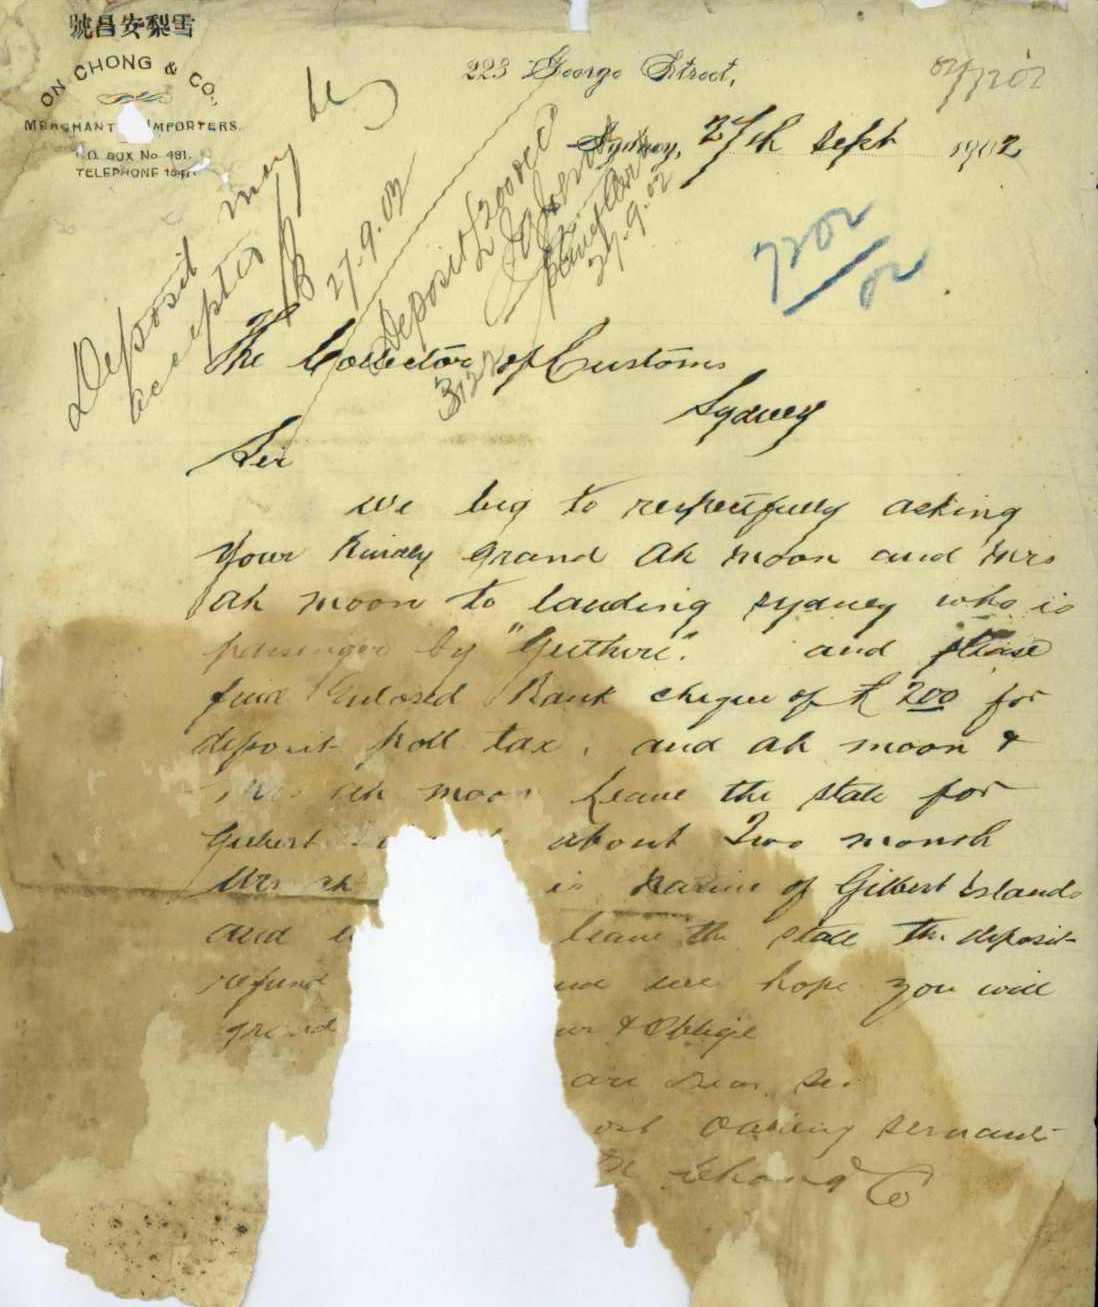 號昌安梨雪
ON CHONG & CO.,
MERCHANT IMPORTERS.
P.O. BOX No 491.
TELEPHONE
223 George Street,
Sydney, 27th Sept 1902
7202/02
Deposit may be
accepted
27.9.02
Deposit £200 recd
27.9.02
The Collector of Customs
Sydney
Sir
We beg to respectfully asking
your kindly grand Ah Moon and Mrs
Ah Moon to landing Sydney who is
passenger by "Guthrie". and please
find Enclosed Bank cheque of £200 for
deposit poll tax. and Ah Moon &
Mrs Ah Moon leave the state for
Gilbert about Two month
Mrs Ah is Native of Gilbert Islands
and leave the state the deposit
refund and we hope you will
grand & Oblige
are Dear Sir
Obliging Servant
Chong Co